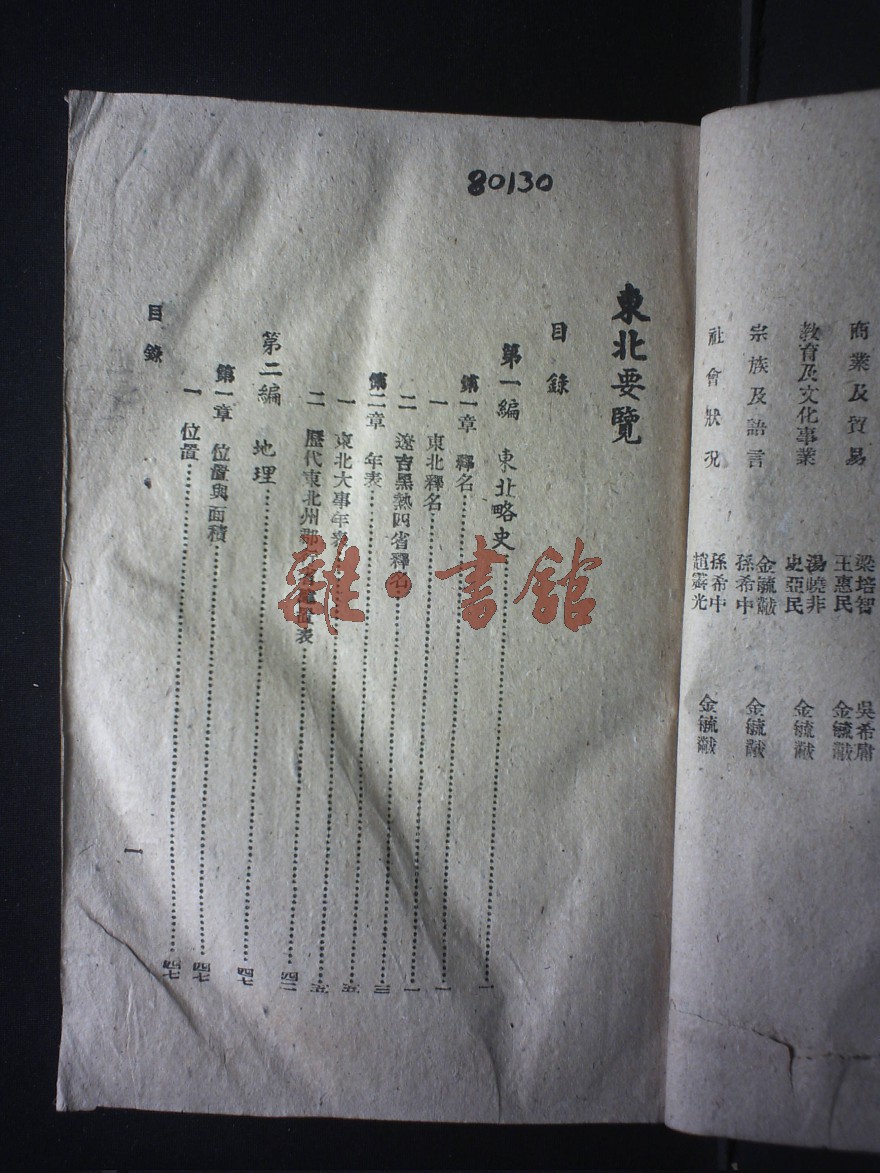 商業及貿易 梁培智 吳希庸
王惠民 金毓黻
教育及文化事業 湯曉非 金毓黻
史亞民
宗族及語言 金毓黻 金毓黻
孫希中
社會狀況 孫希中 金毓黻
趙霽光
80130
東北要覽
目錄
第一編 東北略史 一
第一章 釋名 一
一 東北釋名 一
二 遼吉黑熱四省釋名 三
第二章 年表 五
一 東北大事年表 五
二 歷代東北州郡 建置表 四二
第二編 地理 四七
第一章 位置與面積 四七
一 位置 四七
目錄
一
雜·書館